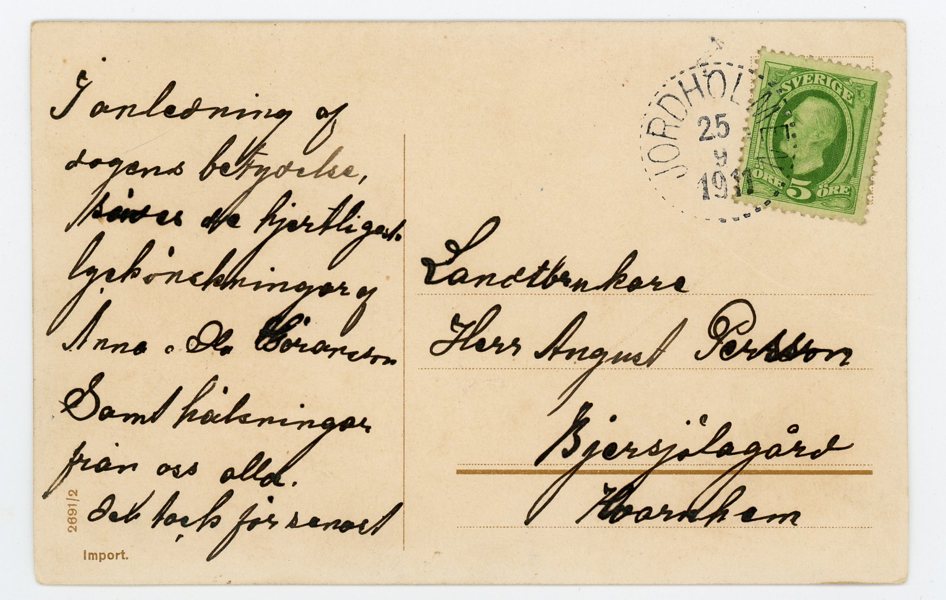 I anledning af
dagens betydelse,
de hjertligaste
lyckönskningar af
Anna o Ola Göransson
Samt hälsningar
från oss alla.
tack för senast
2691/2
Import.
JORDHOLMEN
25
9
1911
SVERIGE
ÖRE 5 ÖRE
Landtbrukare
Herr August Persson
Bjersjölagård
Hvarnhem